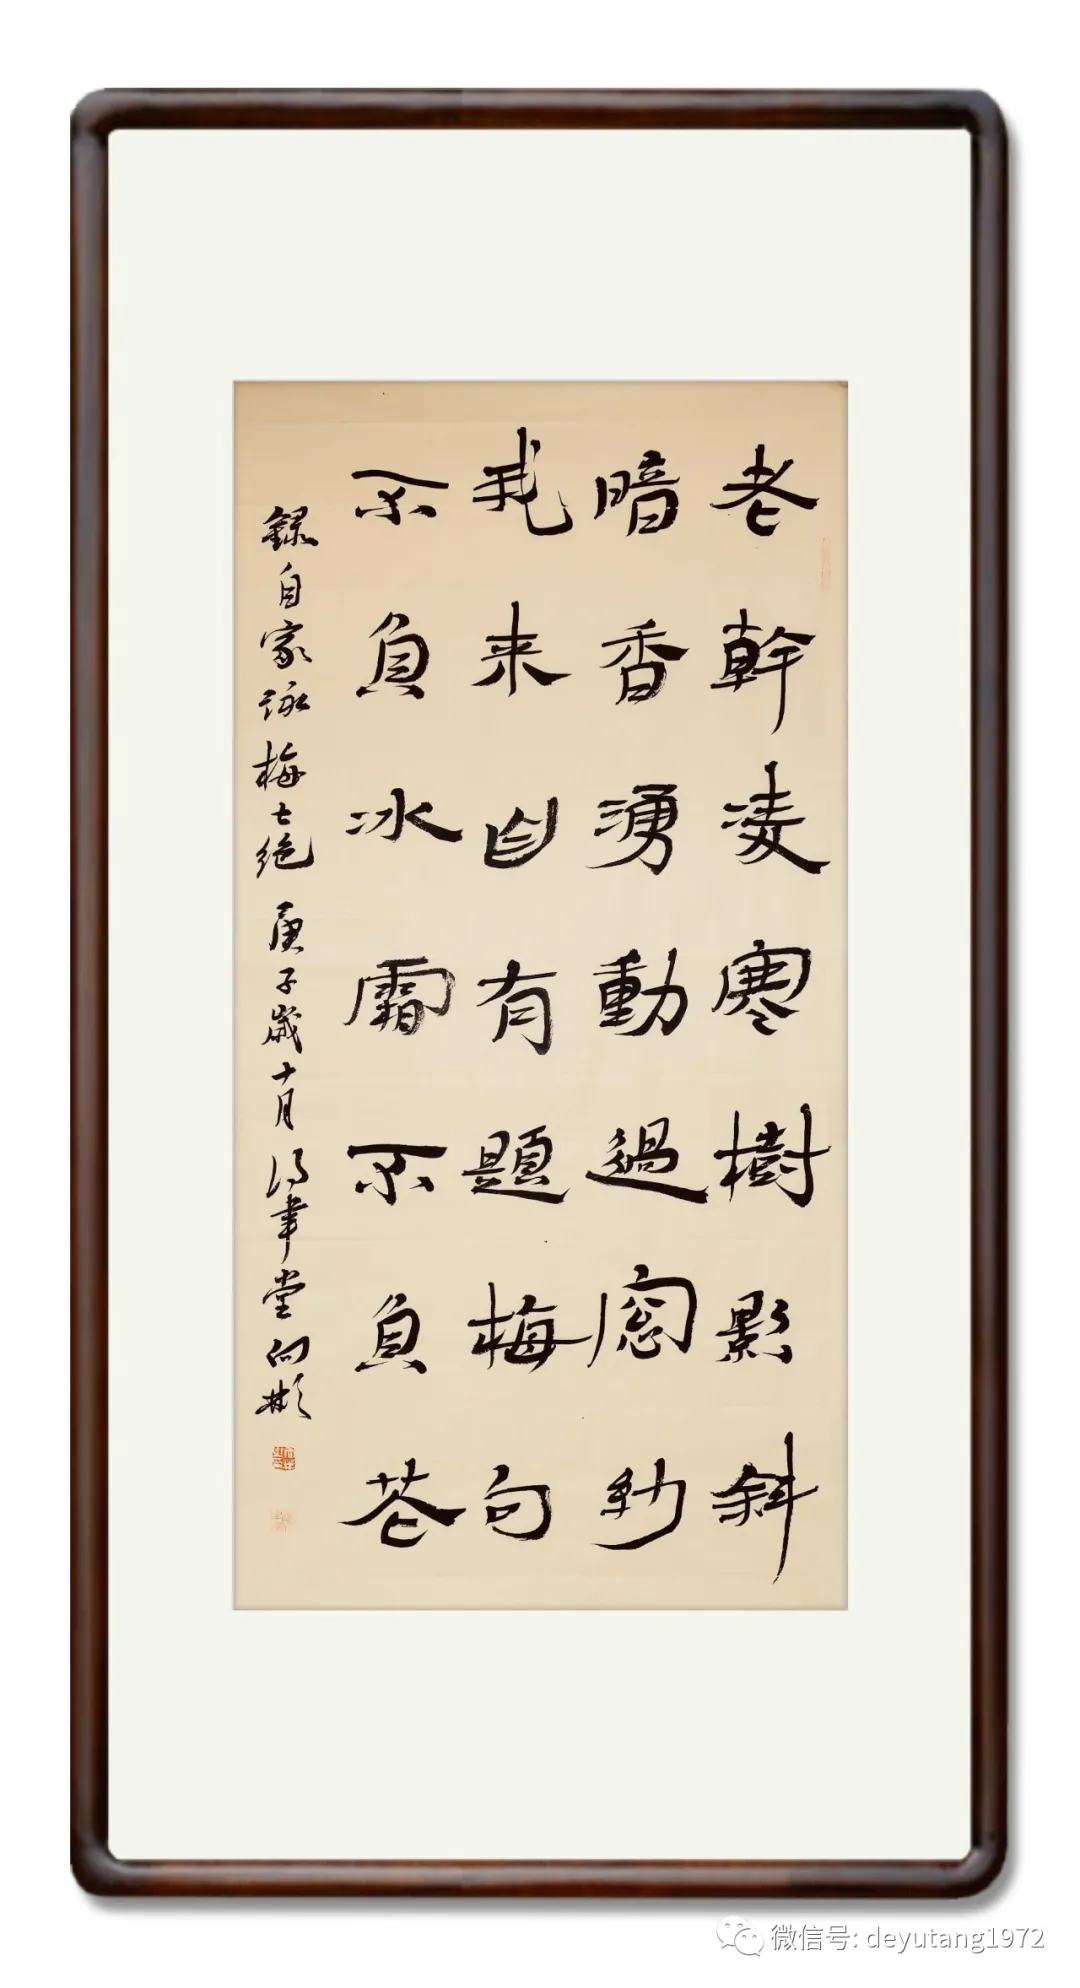 老幹凌寒樹影斜
暗香湧動過窓紗
我来自有題梅句
不負冰霜不負花
録自家詠梅七絶 庚子歲十月 得聿堂向彬
微信号: deyutang1972